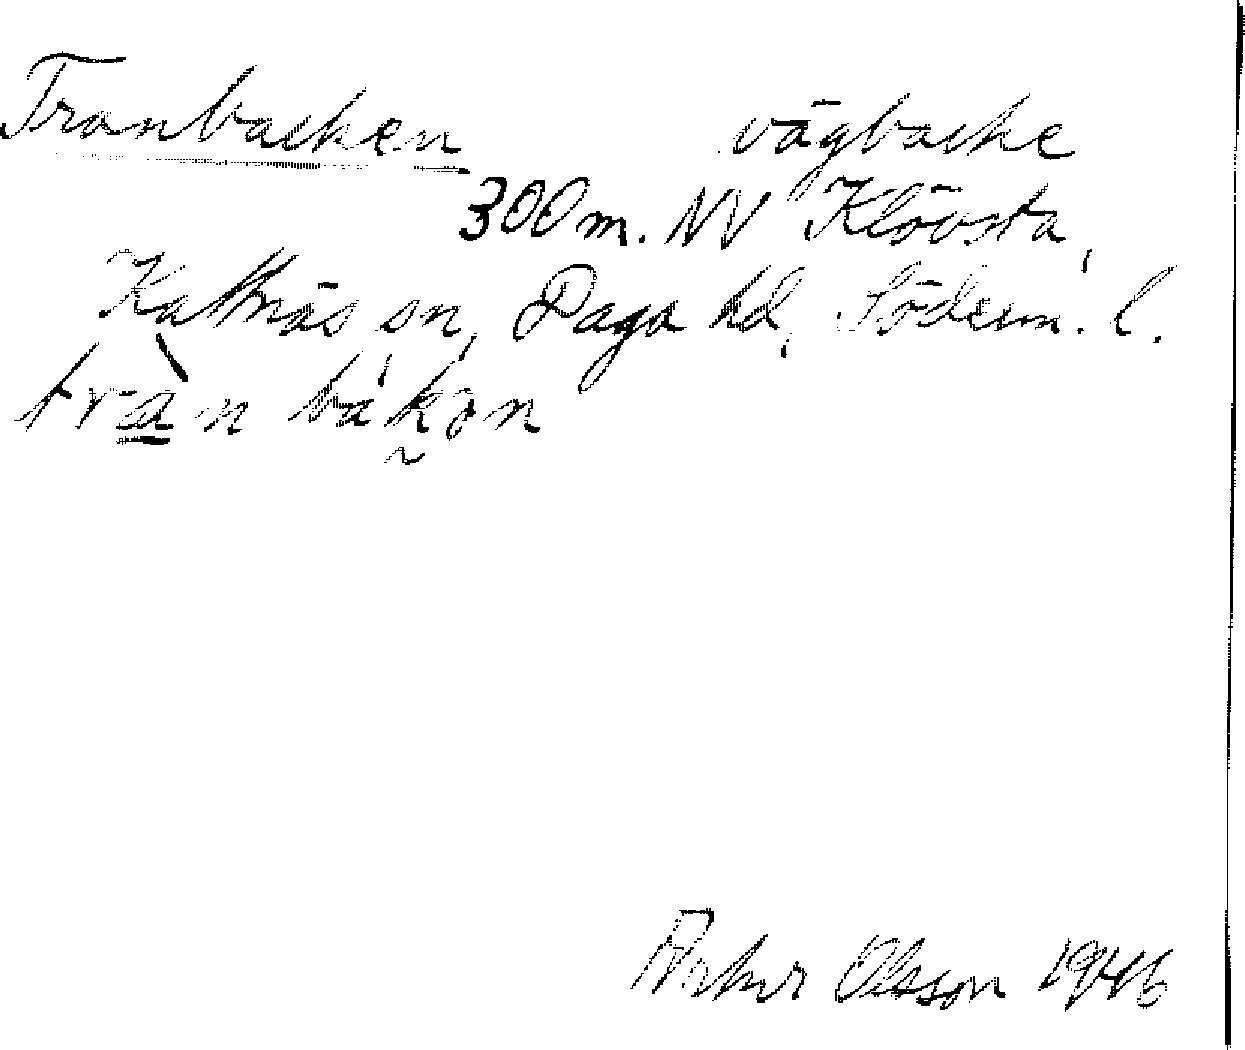 Tranbacken vägbacke
300 m. NV Klövsta,
Kattnäs sn, Daga hd, Söderm. l.
trà̱n bákən
Artur Olsson 1946